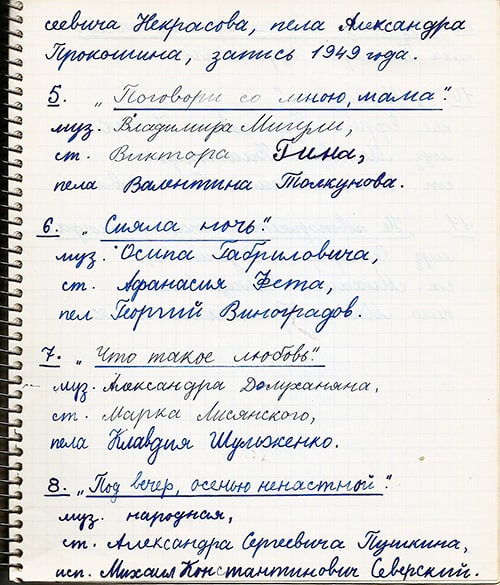 сеевича Некрасова, пела Александра
Прокошина, запись 1949 года.
5. „Поговори со мною, мама":
муз. Владимира Мигули,
ст. Виктора Гина,
пела Валентина Толкунова.
6. „Сияла ночь":
муз. Осипа Габриловича,
ст. Афанасия Фета,
пел Георгий Виноградов.
7. „Что такое любовь":
муз. Александра Долуханяна,
ст. Марка Лисянского,
пела Клавдия Шульженко.
8. „Под вечер, осенью ненастной":
муз. народная,
ст. Александра Сергеевича Пушкина,
исп. Михаил Константинович Северский.